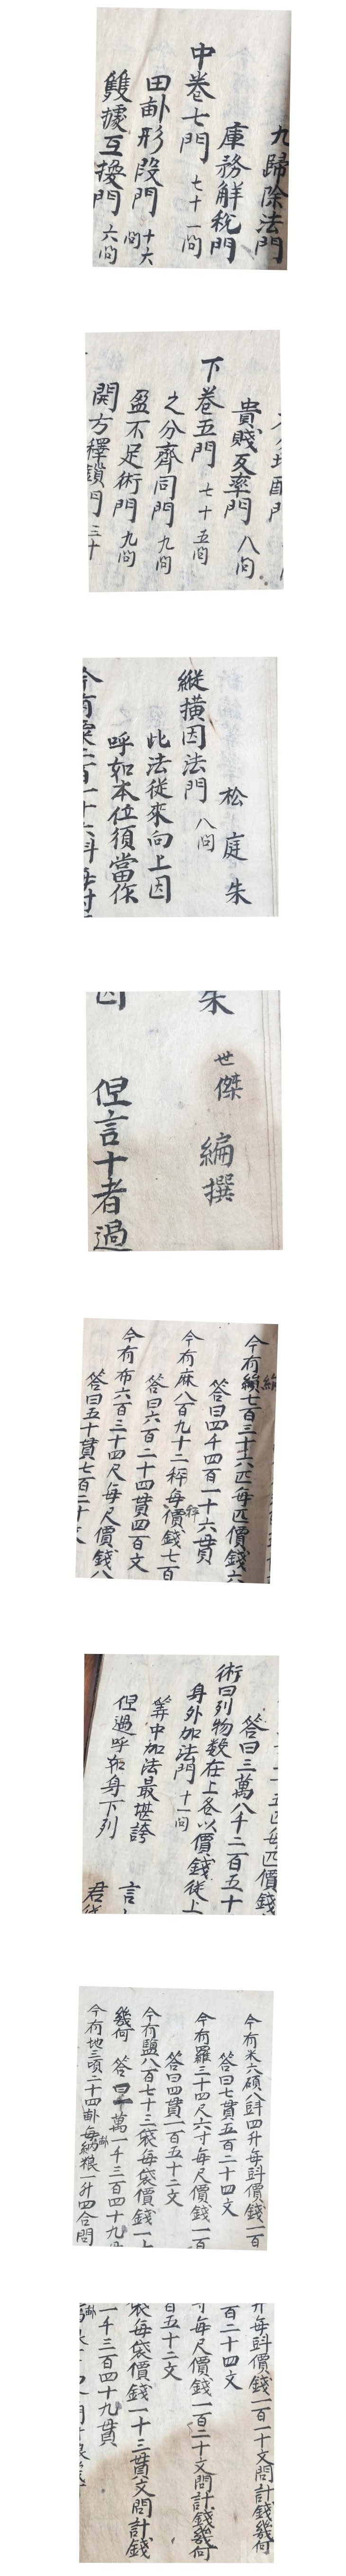 九歸除法門
庫務解稅門
中卷七門 七十一問
田畝形段門 十六問
雙據互換門 六問
貴賤反率門 八問
下卷五門 七十五問
之分齊同門 九問
盈不足術門 九問
開方釋鎖門 三十
松庭朱
縱橫因法門 八問
此法從來向上因
呼如本位須當作
今有粟二百一十六斗每斗
朱世傑 編撰
因 但言十者過
今有絹七百三十六匹每匹價錢六
答曰四千四百一十六貫
今有麻八百九十二秤每秤價錢七百
答曰六百二十四貫四百文
今有布六百三十四尺每尺價錢八
答曰五十貫七百二十文
五匹每匹價錢
答曰三萬八千二百五十
術曰列物數在上各以價錢從上
身外加法門 十一問
筭中加法最堪誇 言
但過呼如身下列 君
今有米六碩八斗四升每斗價錢一百
答曰七貫五百二十四文
今有羅三十四尺六寸每尺價錢一百
答曰四貫一百五十二文
今有鹽八百七十三袋每袋價錢一十
幾何 答曰一萬一千三百四十九貫
今有地三頃二十四畝每畝納粮一升四合問
升每斗價錢一百一十文問計錢幾何
百二十四文
寸每尺價錢一百二十文問計錢幾何
百五十二文
袋每袋價錢一十三貫文問計錢
一千三百四十九貫